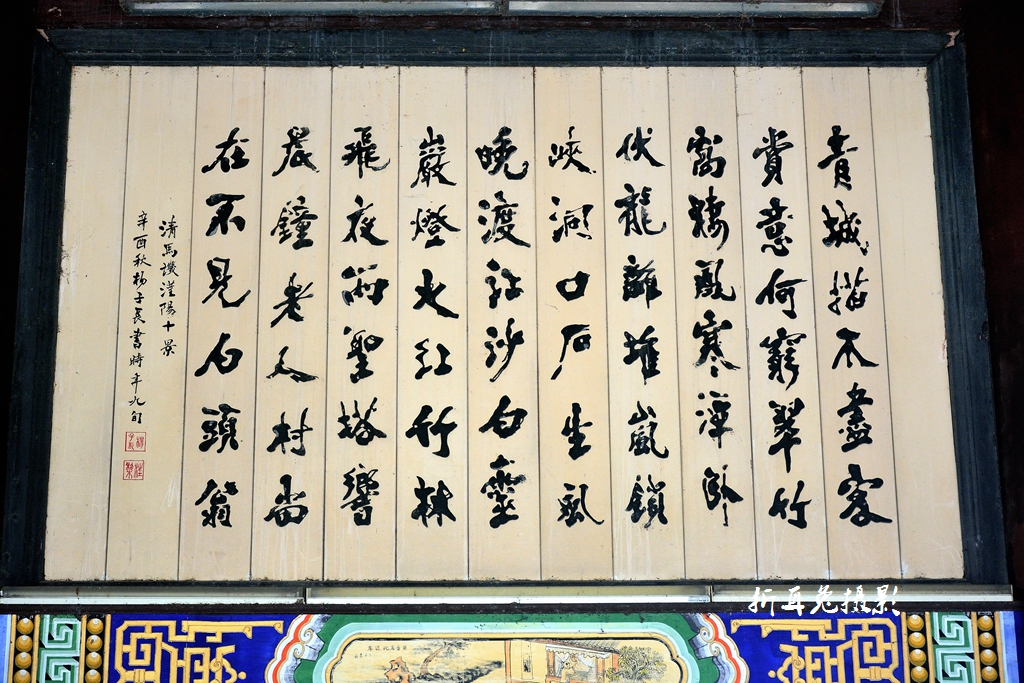 青城描不盡客
賞意何窮翠竹
窩棲鳳寒潭卧
伏龍離堆嵐鎖
峽洞口石生風
曉渡江沙白靈
巖燈火紅竹林
飛夜雨聖塔響
晨鐘老人村尚
在不見白頭翁
清馬讖灌陽十景
辛酉秋楊子長書時年九旬
折耳兔摄影